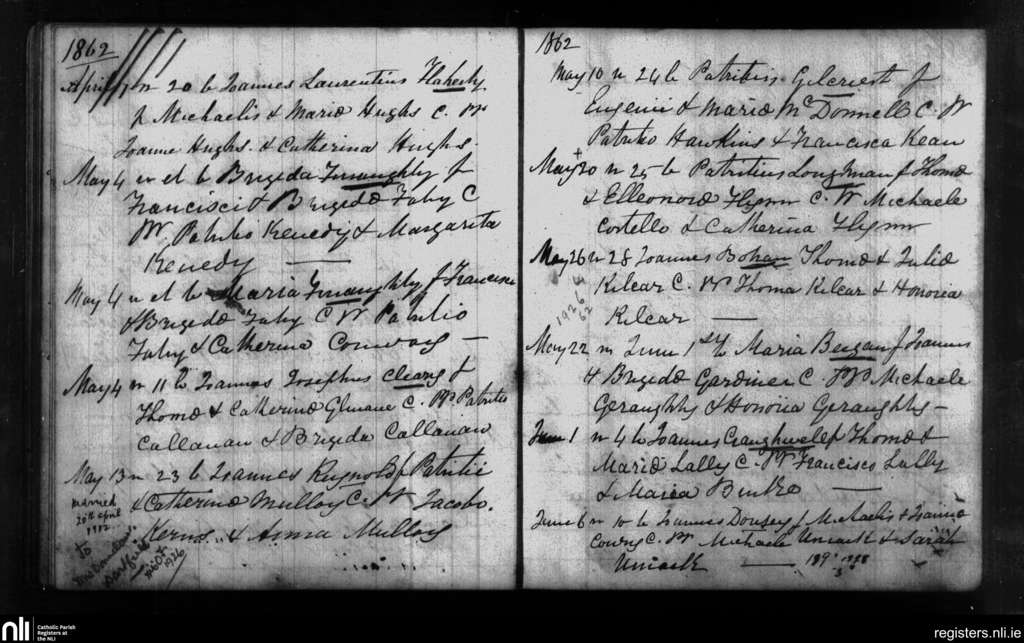 1862
April 17 n 20 b Joannes Laurentius Flaherty
f Michaelis & Mariæ Hughs C. Pp
Joanne Hughs. & Catherina Hughs.
May 4 n et b Brigida Finaughty f
Francisci & Brigidæ Fahy C
Pp. Patritio Kenedy & Margarita
Kenedy
May 4 n et b Maria Finaughty f Francisci
& Brigidæ Fahy C Pp Patritio
Fahy & Catherina Conway
May 4 n 11 b Joannes Josephus Cleary f
Thomæ & Catherinæ Glynane C. Pp Patritio
Callanan & Brigida Callanan
May 13 n 23 b Joannes Reynolds f Patritii
& Catherinæ Mulloy C. Pp Jacobo.
Kerns. & Anna Mulloy
married
20th April
1912
to
1926
1862
May 10 n 24 b Patritius Gilcriest f
Eugenii & Mariæ McDonnell C. Pp
Patritio Hawkins & Francisca Kean
May 20 n 25 b Patritius Longman f Thomæ
& Elleonoræ Flynn C. Pp Michaele
Costello & Catherina Flynn
May 26 n 28 Joannes Bohan Thomæ & Juliæ
Kilcar C. Pp Thoma Kilcar & Honoria
Kilcar
1926
62
May 22 n June 1st b Maria Bergan f Joannis
& Brigidæ Gardiner C. Pp Michaele
Geraughty & Honoria Geraughty
June 1 n 4 b Joannes Craughwell f Thomæ &
Mariæ Lally C. Pp Francisco Lally
& Maria Burke
June 6 n 10 b Joannes f Michaelis & Joannæ
C. Pp Michaele Uniack & Sarah
Uniack
nli
Catholic Parish
Registers at
the NLI
registers.nli.ie